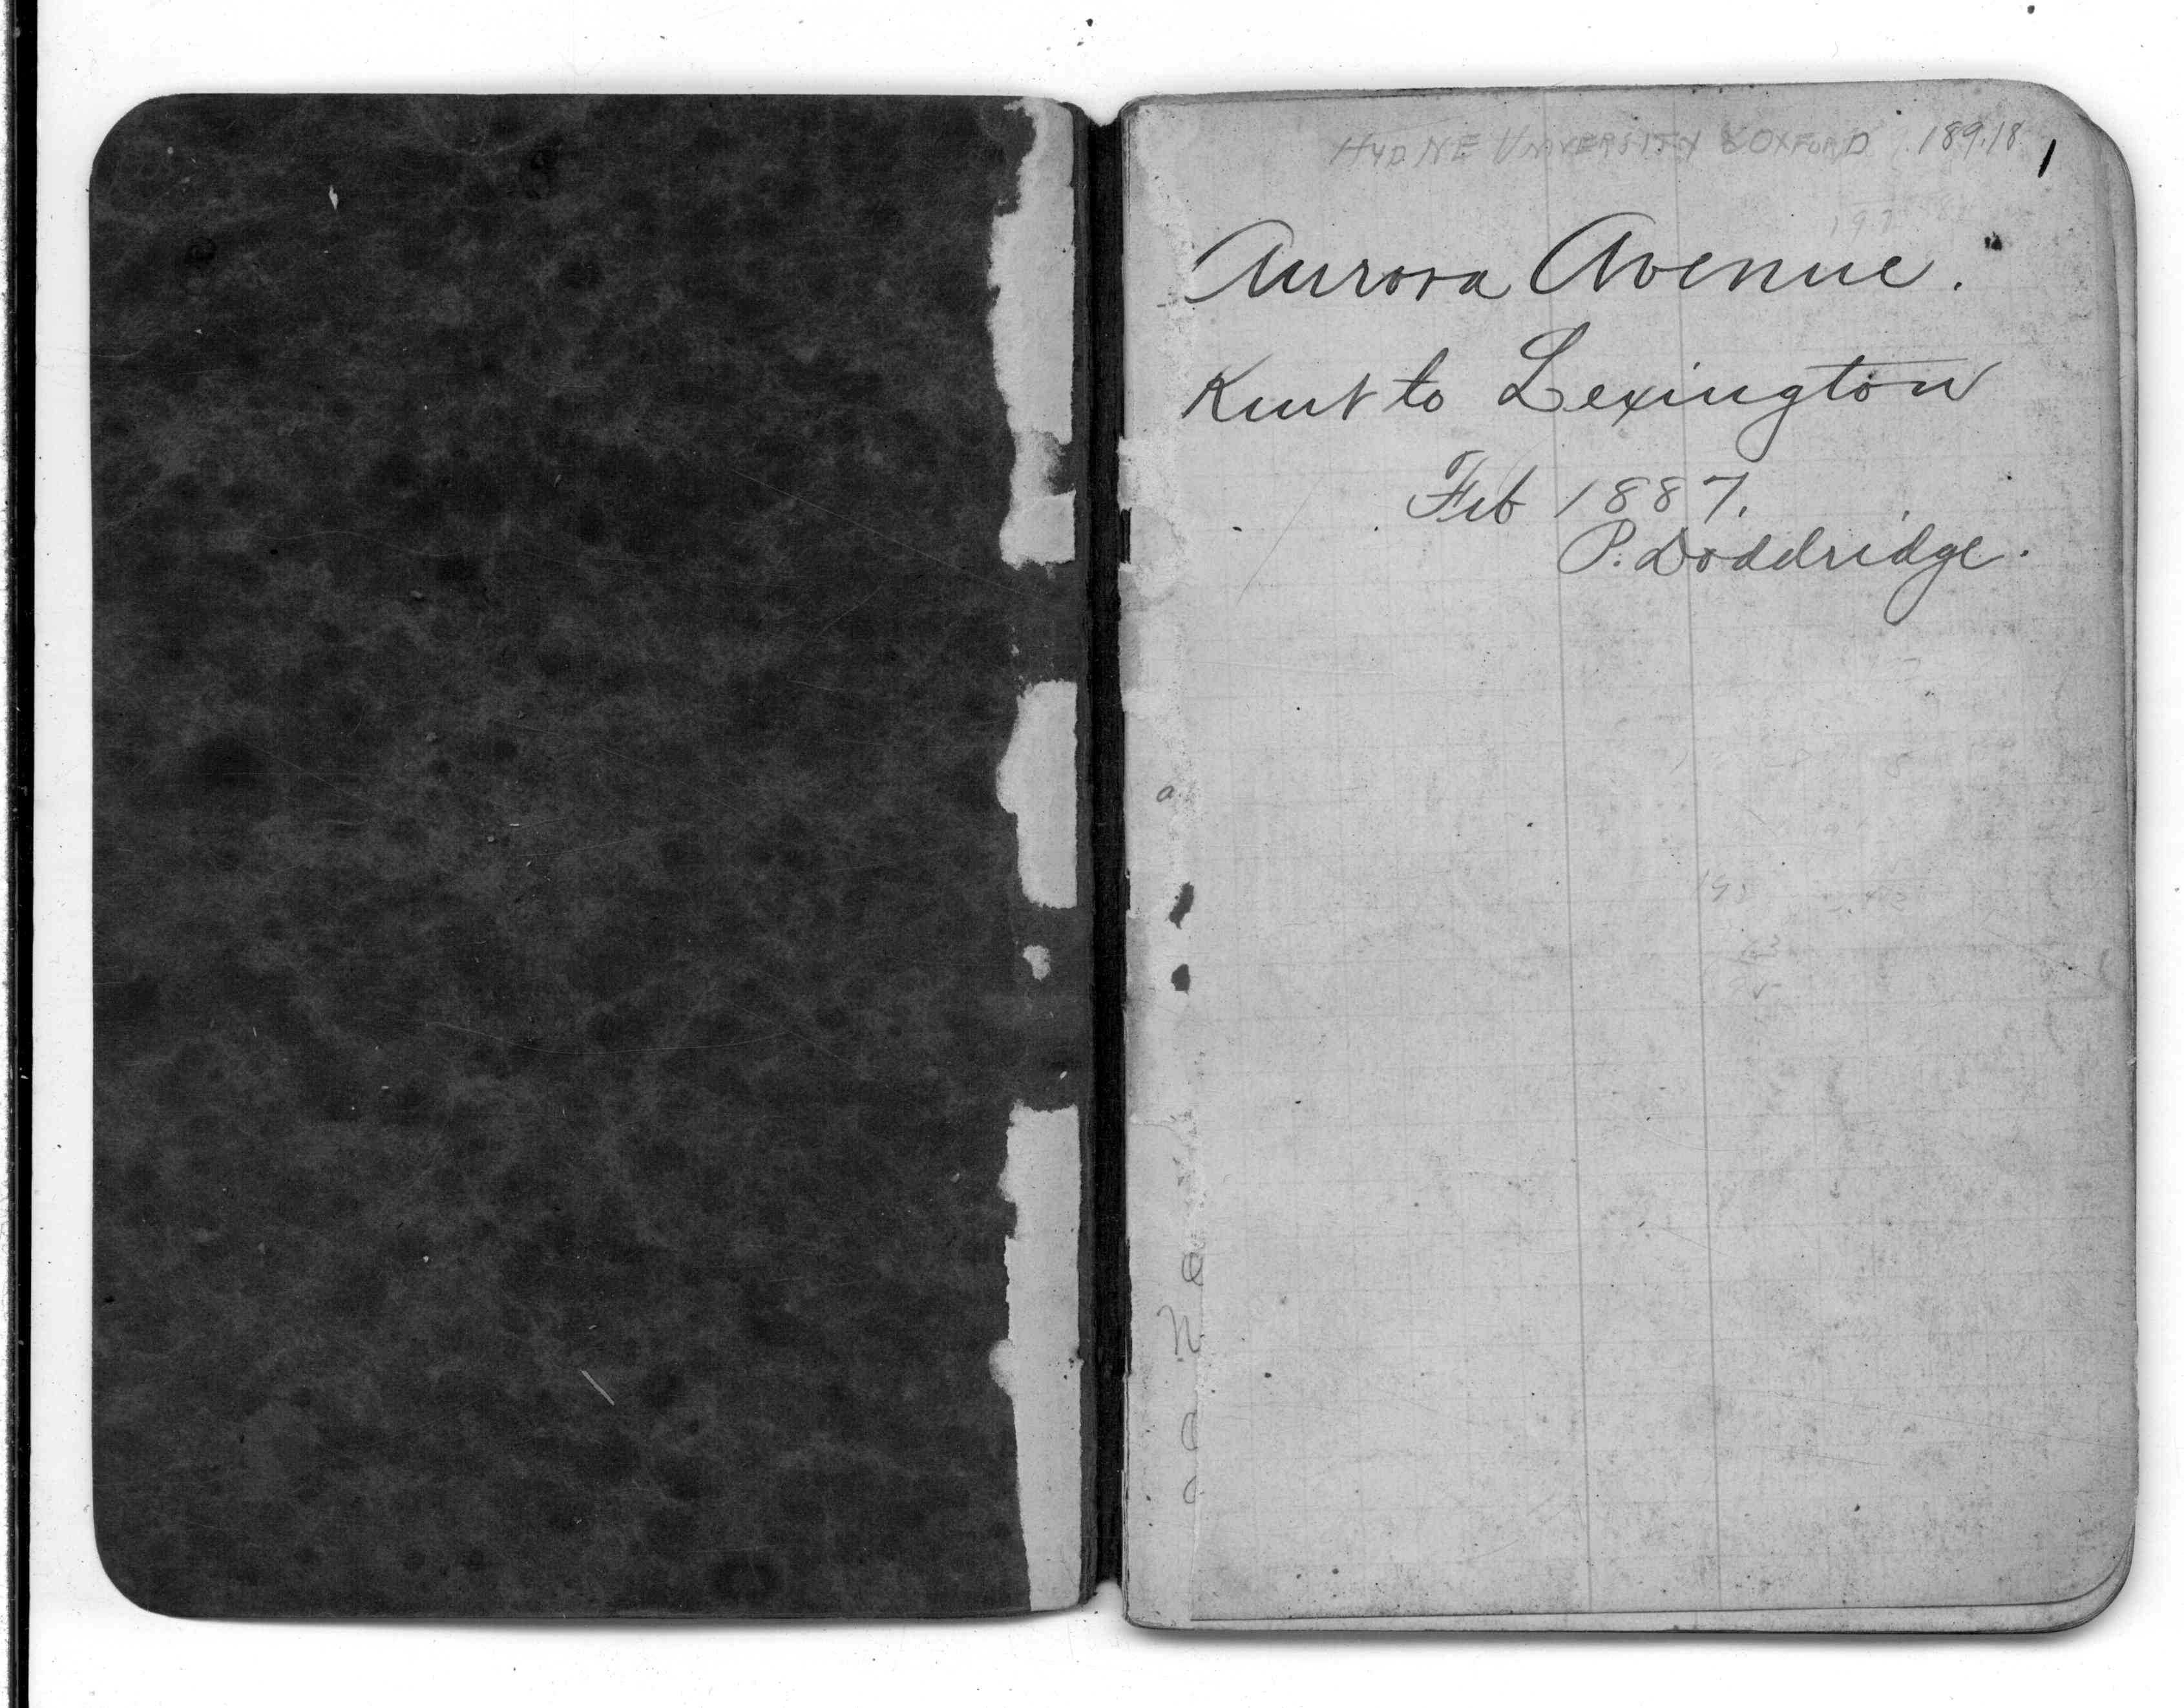 HYD NE UNIVERSITY & OXFORD 189.18 1
Aurora Avenue.
Kent to Lexington
Feb 1887.
P. Doddridge.